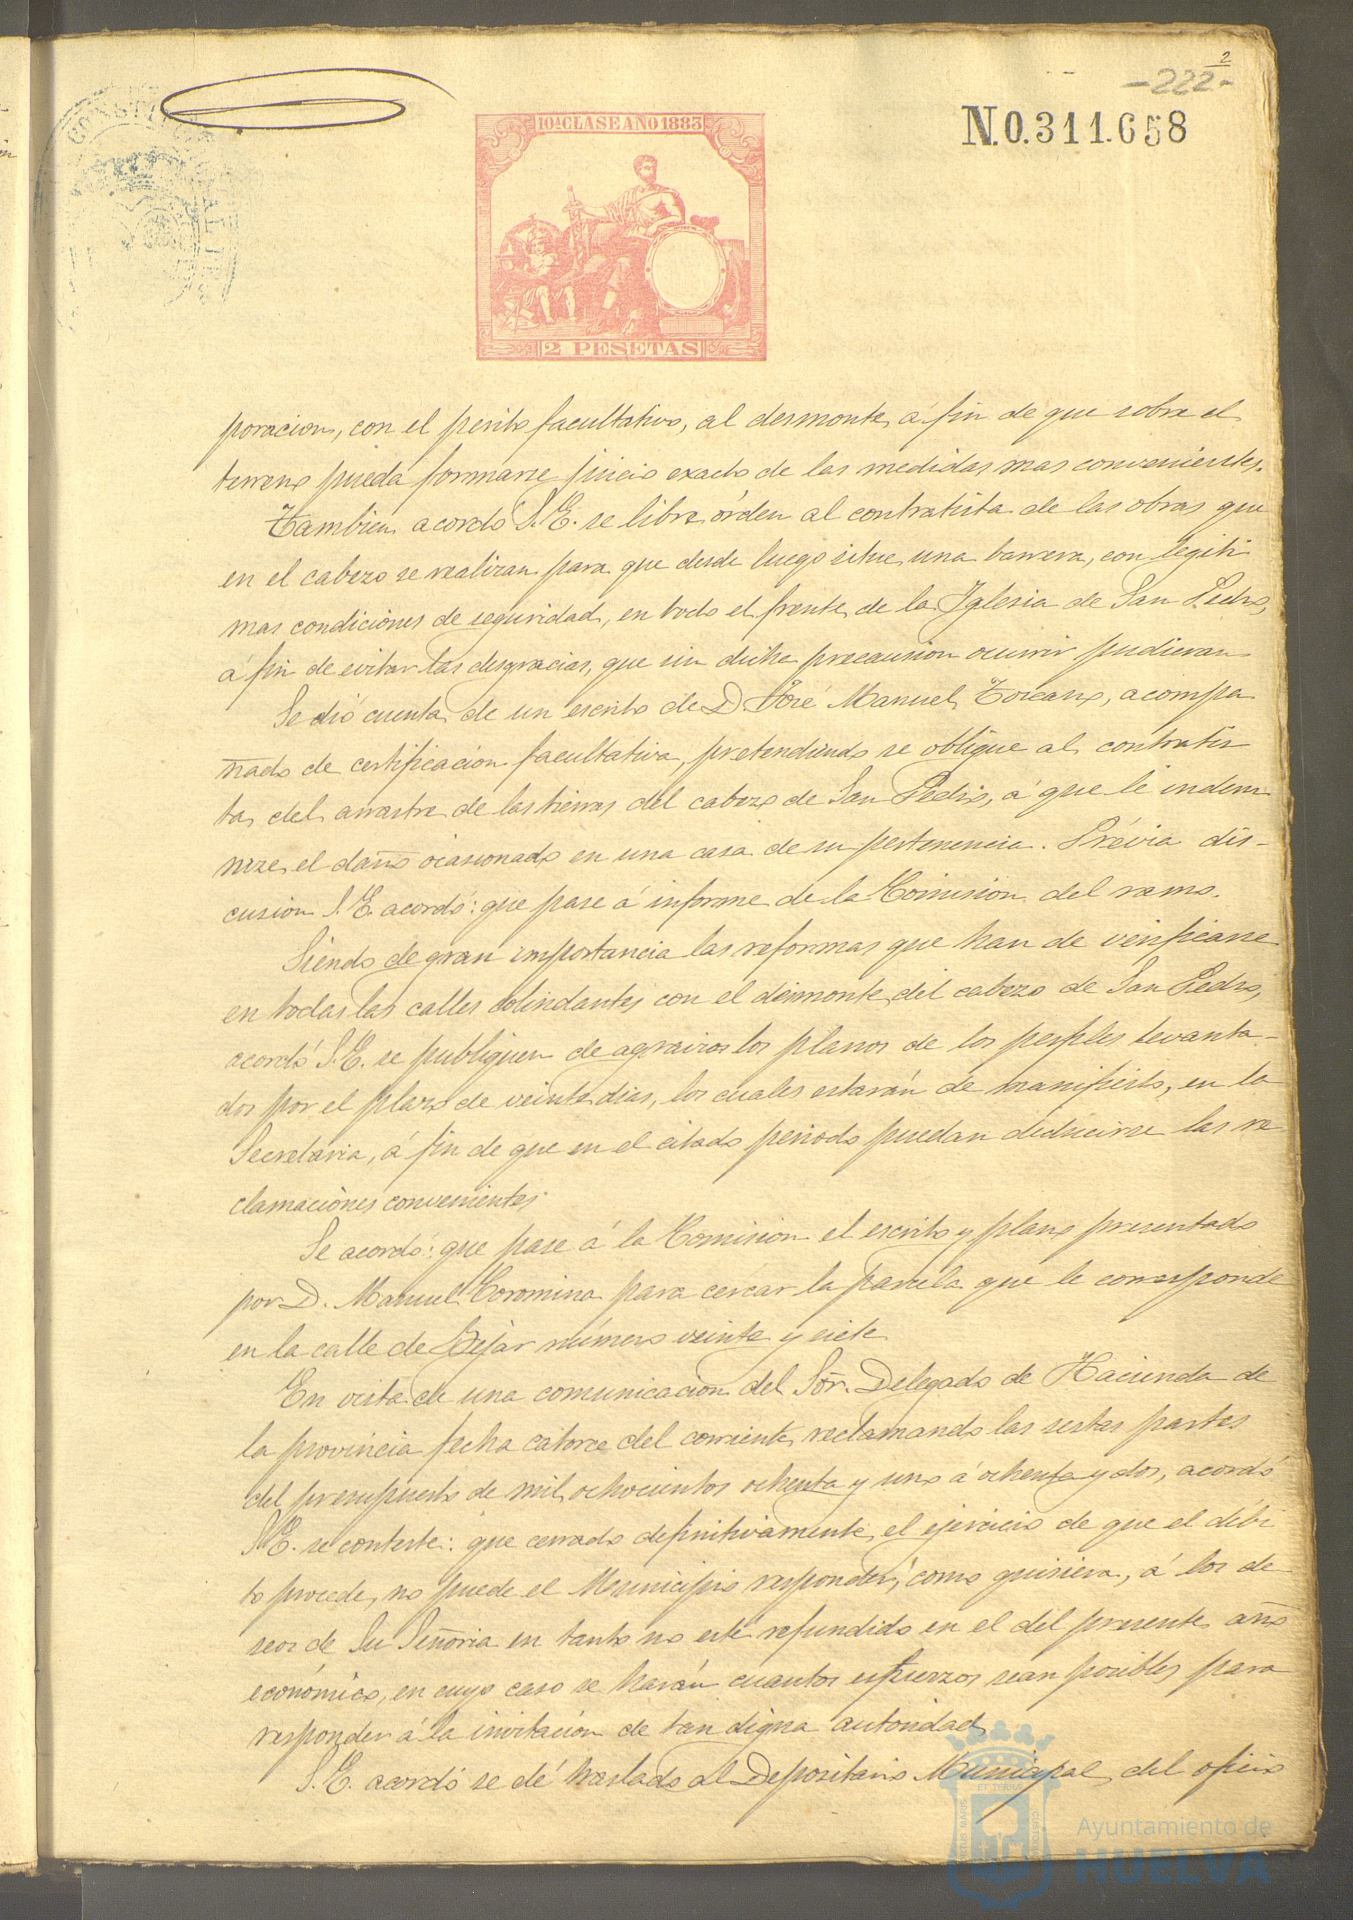 2
-222-
N.0.311.658
CONSTITUCIONAL
10ª CLASE AÑO 1883
2 PESETAS
poracion, con el perito facultativo, al desmonte á fin de que sobre el
terreno pueda formarse juicio exacto de las medidas mas convenientes.
Tambien acordó S.E. se libre órden al contratista de las obras que
en el cabezo se realizan para que desde luego situe una barrera, con legiti
mas condiciones de seguridad, en todo el frente de la Iglesia de San Pedro,
á fin de evitar las desgracias, que sin dicha precausion ocurrir pudieran
Se dió cuenta de un escrito de D. José Manuel Toscano, acompa
ñado de certificación facultativa, pretendiendo se obligue al contratis
ta del arrastre de las tierras del cabezo de San Pedro, á que le indem
nize el daño ocasionado en una casa de su pertenencia. Prévia dis-
cusion S.E. acordó: que pase á informe de la Comision del ramo.
Siendo de gran importancia las reformas que han de verificarse
en todas las calles colindantes con el desmonte del cabezo de San Pedro,
acordó S.E. se publiquen de agravios los planos de los perfiles levanta-
dos por el plazo de veinte dias, los cuales estarán de manifiesto, en la
Secretaria, á fin de que en el citado periodo puedan deducirse las re
clamaciónes convenientes.
Se acordó: que pase á la Comision el escrito y plano presentado
por D. Manuel Coromina para cercar la parcela que le corresponde
en la calle de Bejar número veinte y siete
En vista de una comunicacion del Sor. Delegado de Hacienda de
la provincia fecha catorce del corriente, reclamando las sestas partes
del presupuesto de mil ochocientos ochenta y uno á ochenta y dos, acordó
S.E. se conteste: que cerrado definitivamente el ejercicio de que el débi
to procede, no puede el Municipio responder, como quisiera, á los de
seos de Su Señoria en tanto no esté refundido en el del presente año
económico, en cuyo caso se harán cuantos esfuerzos sean posibles para
responder á la invitación de tan digna autoridad
S.E. acordó se dé traslado al Depositario Municipal, del oficio
Ayuntamiento de
HUELVA